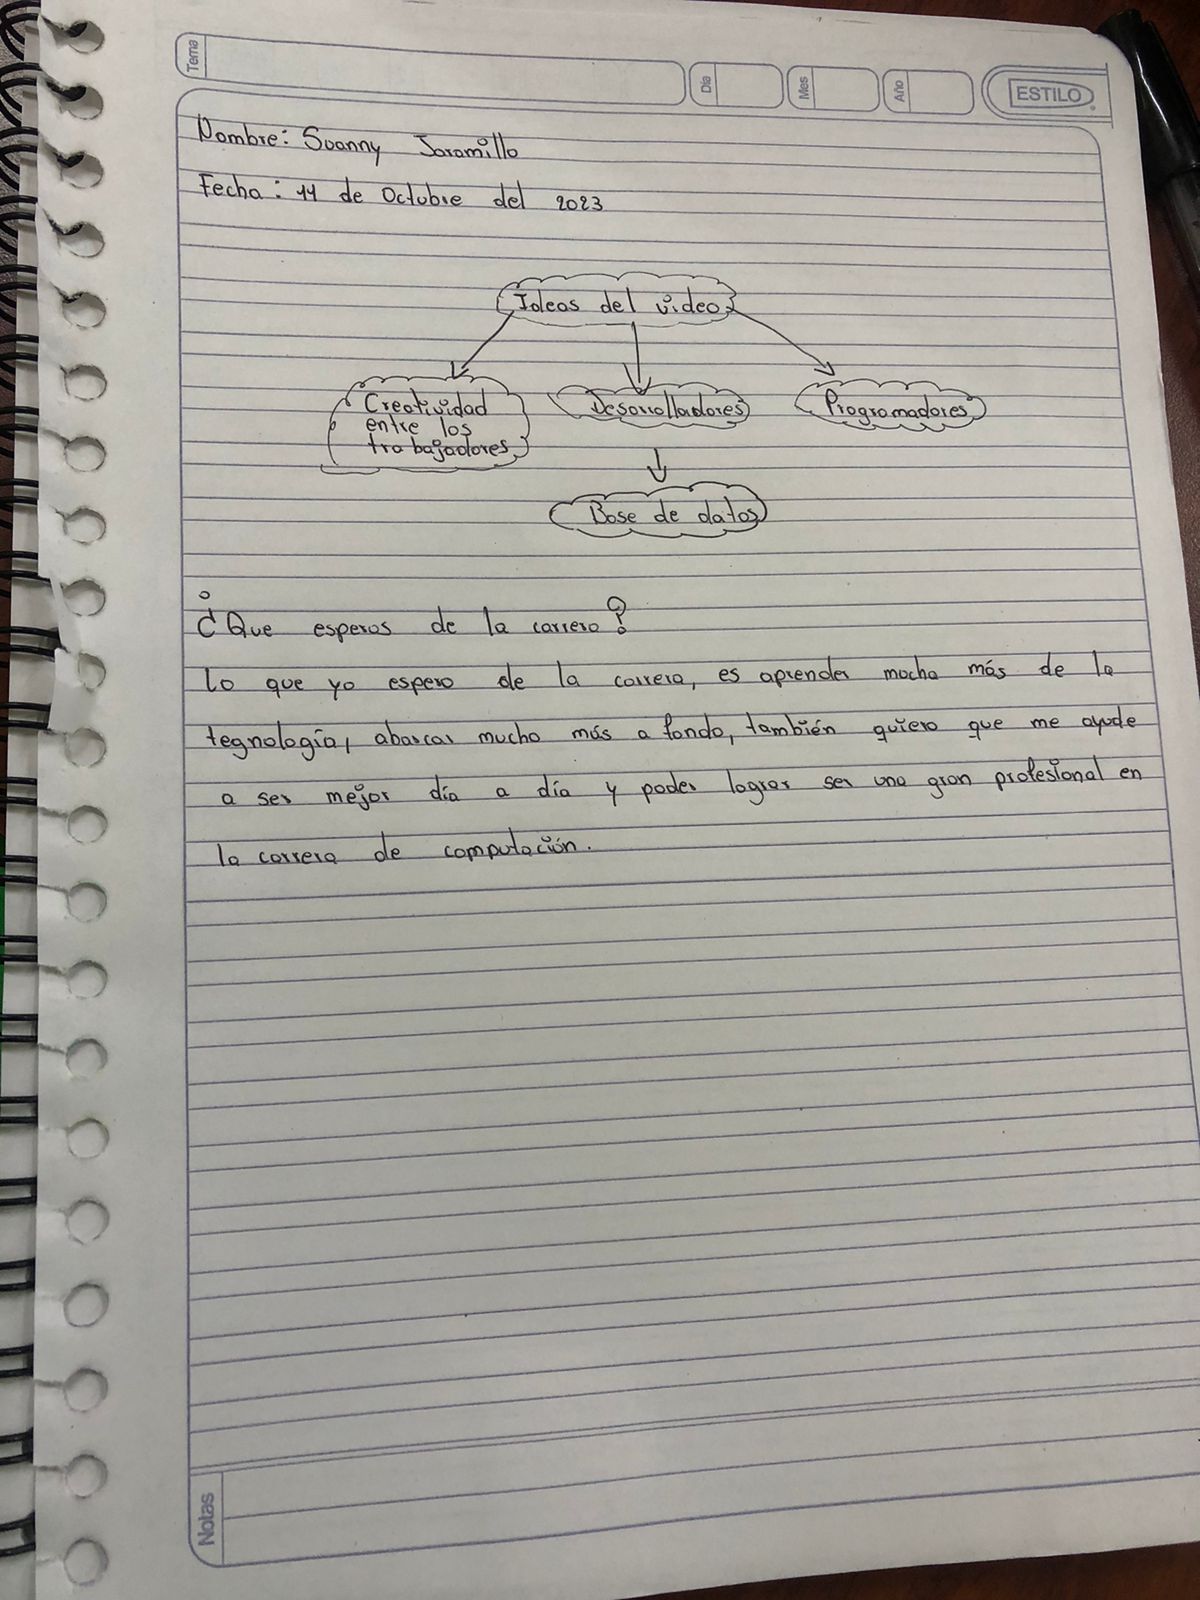 Tema
Día
Mes
Año
ESTILO
Nombre: Suanny Jaramillo
Fecha: 11 de Octubre del 2023
Ideas del video
Creatividad
entre los
trabajadores
Desarrolladores
Programadores
Base de datos
¿Que esperas de la carrera?
Lo que yo espero de la carrera, es aprender mucho más de la
tegnología, abarcar mucho más a fondo, también quiero que me ayude
a ser mejor día a día y poder lograr ser una gran profesional en
la carrera de computación.
Notas